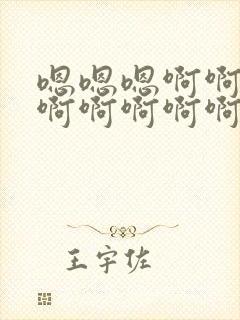 嗯嗯嗯啊啊
啊啊啊啊啊
王宇佐